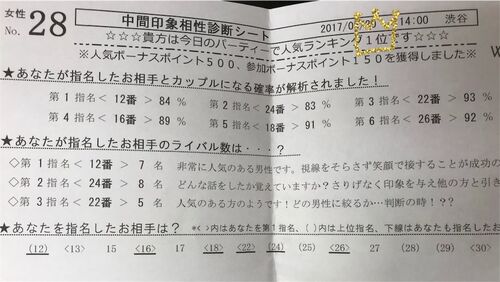 女性
No. 28
中間印象相性診断シート
2017/0 14:00 渋谷
☆☆☆貴方は今日のパーティーで人気ランキング1位です☆☆☆
※人気ボーナスポイント500、参加ボーナスポイント150を獲得しました※
★あなたが指名したお相手とカップルになる確率が解析されました!
第1指名< 12番 > 84 % 第2指名< 24番 > 83 % 第3指名< 22番 > 93 %
第4指名< 16番 > 89 % 第5指名< 18番 > 91 % 第6指名< 26番 > 92 %
★あなたが指名したお相手のライバル数は・・・?
◇第1指名< 12番 > 7 名 非常に人気のある男性です。視線をそらさず笑顔で接することが成功の
◇第2指名< 24番 > 8 名 どんな話をしたか覚えていますか?さりげなく印象を与え他の方と引き
◇第3指名< 22番 > 5 名 人気のある方のようです!どの男性に絞るか…判断の時!??
★あなたを指名したお相手は? 〈 〉内はあなたを第1指名、( )内は上位指名、下線はあなたも指名したお
(12) <13> 15 <16> 17 <18> <22> (24) (25) <26> (27) (28) (29) <30>